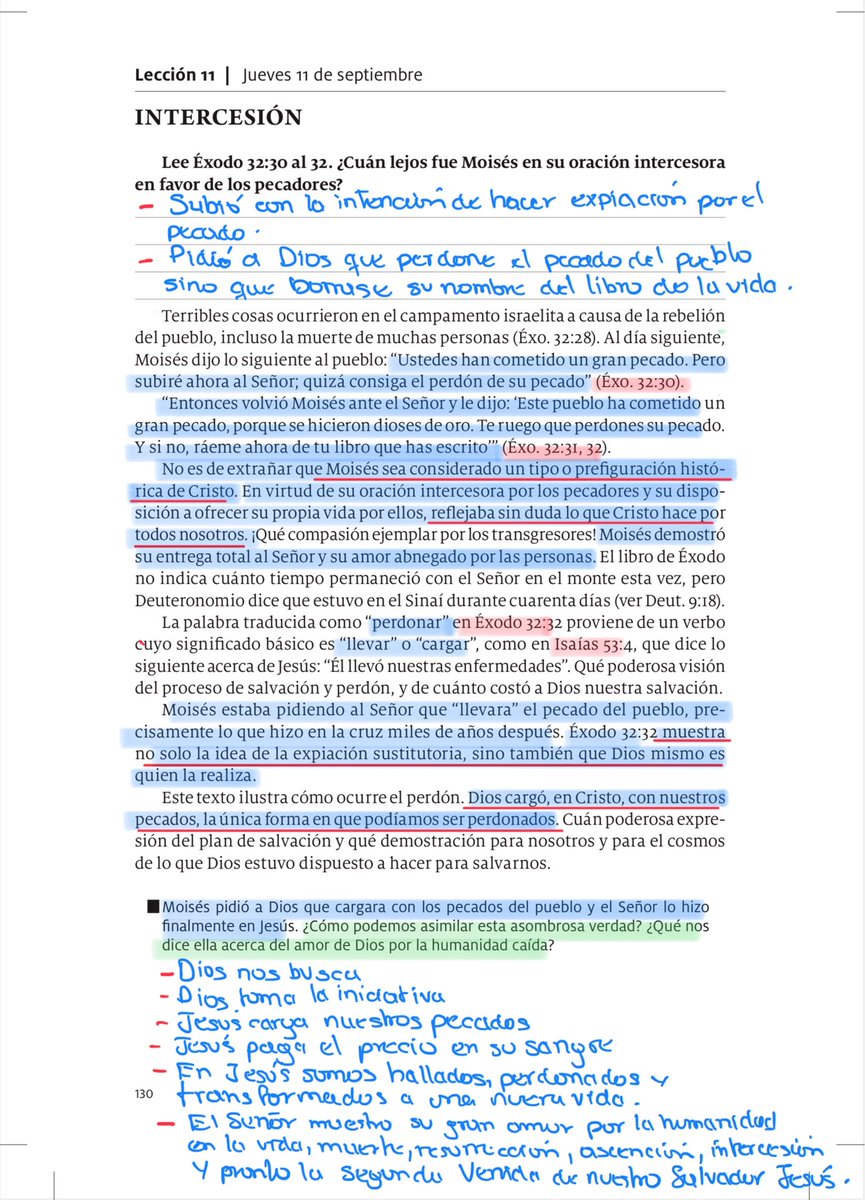 Lección 11 | Jueves 11 de septiembre
INTERCESIÓN
Lee Éxodo 32:30 al 32. ¿Cuán lejos fue Moisés en su oración intercesora
en favor de los pecadores?
- Subió con la intención de hacer expiación por el
pecado.
- Pidió a Dios que perdone el pecado del pueblo
sino que borrase su nombre del libro de la vida.
Terribles cosas ocurrieron en el campamento israelita a causa de la rebelión
del pueblo, incluso la muerte de muchas personas (Éxo. 32:28). Al día siguiente,
Moisés dijo lo siguiente al pueblo: “Ustedes han cometido un gran pecado. Pero
subiré ahora al Señor; quizá consiga el perdón de su pecado” (Éxo. 32:30).
“Entonces volvió Moisés ante el Señor y le dijo: ‘Este pueblo ha cometido un
gran pecado, porque se hicieron dioses de oro. Te ruego que perdones su pecado.
Y si no, ráeme ahora de tu libro que has escrito’” (Éxo. 32:31, 32).
No es de extrañar que Moisés sea considerado un tipo o prefiguración histó-
rica de Cristo. En virtud de su oración intercesora por los pecadores y su dispo-
sición a ofrecer su propia vida por ellos, reflejaba sin duda lo que Cristo hace por
todos nosotros. ¡Qué compasión ejemplar por los transgresores! Moisés demostró
su entrega total al Señor y su amor abnegado por las personas. El libro de Éxodo
no indica cuánto tiempo permaneció con el Señor en el monte esta vez, pero
Deuteronomio dice que estuvo en el Sinaí durante cuarenta días (ver Deut. 9:18).
La palabra traducida como “perdonar” en Éxodo 32:32 proviene de un verbo
cuyo significado básico es “llevar” o “cargar”, como en Isaías 53:4, que dice lo
siguiente acerca de Jesús: “Él llevó nuestras enfermedades”. Qué poderosa visión
del proceso de salvación y perdón, y de cuánto costó a Dios nuestra salvación.
Moisés estaba pidiendo al Señor que “llevara” el pecado del pueblo, pre-
cisamente lo que hizo en la cruz miles de años después. Éxodo 32:32 muestra
no solo la idea de la expiación sustitutoria, sino también que Dios mismo es
quien la realiza.
Este texto ilustra cómo ocurre el perdón. Dios cargó, en Cristo, con nuestros
pecados, la única forma en que podíamos ser perdonados. Cuán poderosa expre-
sión del plan de salvación y qué demostración para nosotros y para el cosmos
de lo que Dios estuvo dispuesto a hacer para salvarnos.
■ Moisés pidió a Dios que cargara con los pecados del pueblo y el Señor lo hizo
finalmente en Jesús. ¿Cómo podemos asimilar esta asombrosa verdad? ¿Qué nos
dice ella acerca del amor de Dios por la humanidad caída?
- Dios nos busca
- Dios toma la iniciativa
- Jesús carga nuestros pecados
- Jesús paga el precio en su sangre
- En Jesús somos hallados, perdonados y
130
transformados a una nueva vida.
- El Señor muestro su gran amor por la humanidad
en la vida, muerte, resurrección, ascención, intercesión
y pronto la segunda Venida de nuestro Salvador Jesús.